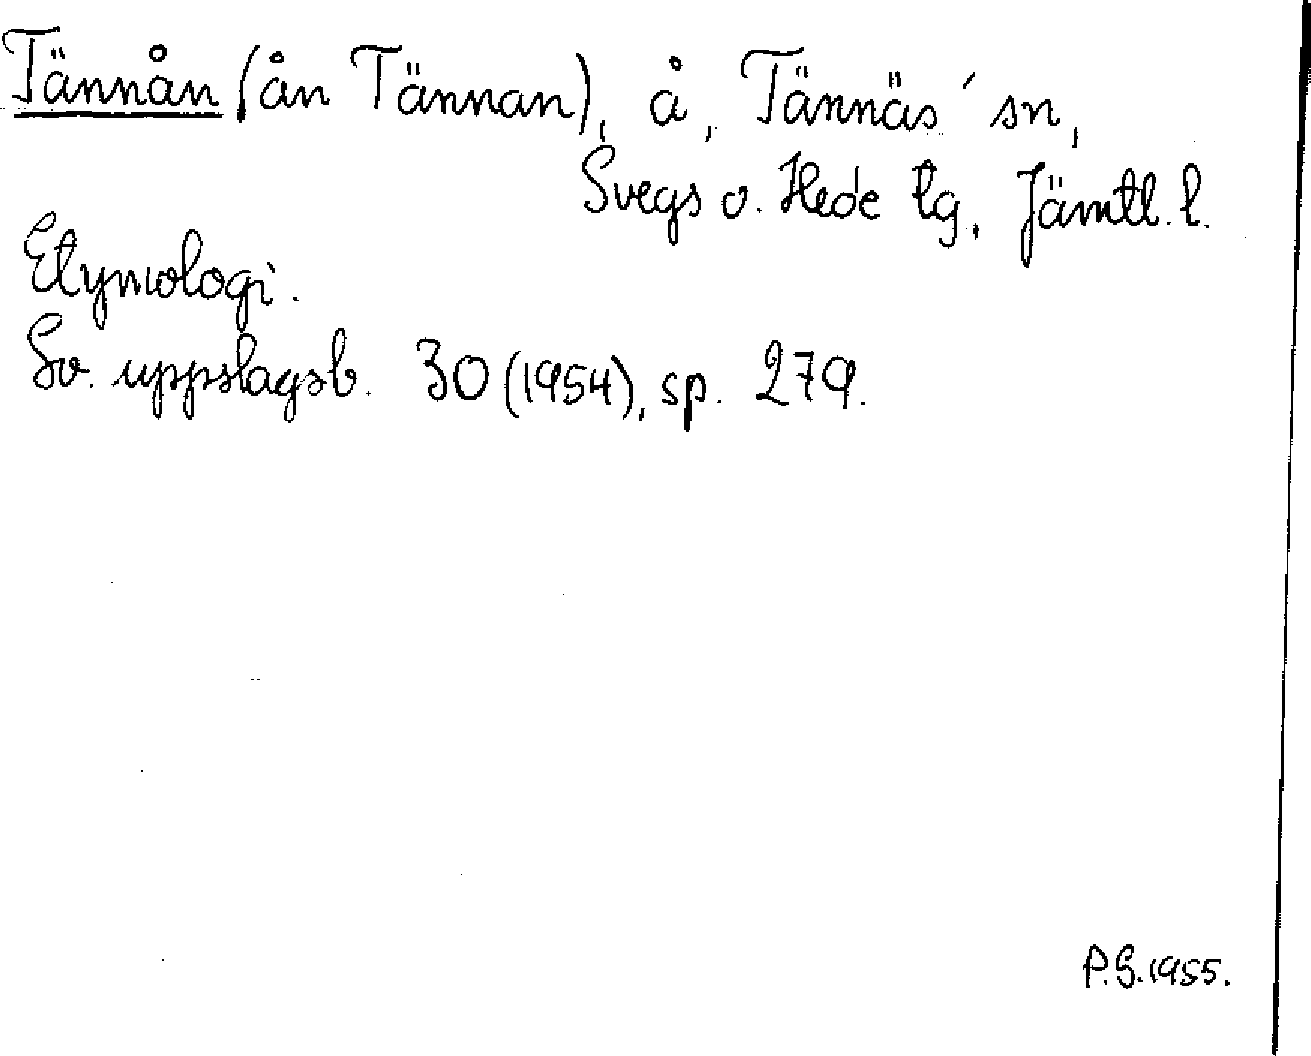 Tännån (ån Tännan), å, Tännäs' sn,
Svegs o. Hede tg, Jämtl. l.
Etymologi.
Sv. uppslagsb. 30 (1954), sp. 279.
P.G. 1955.